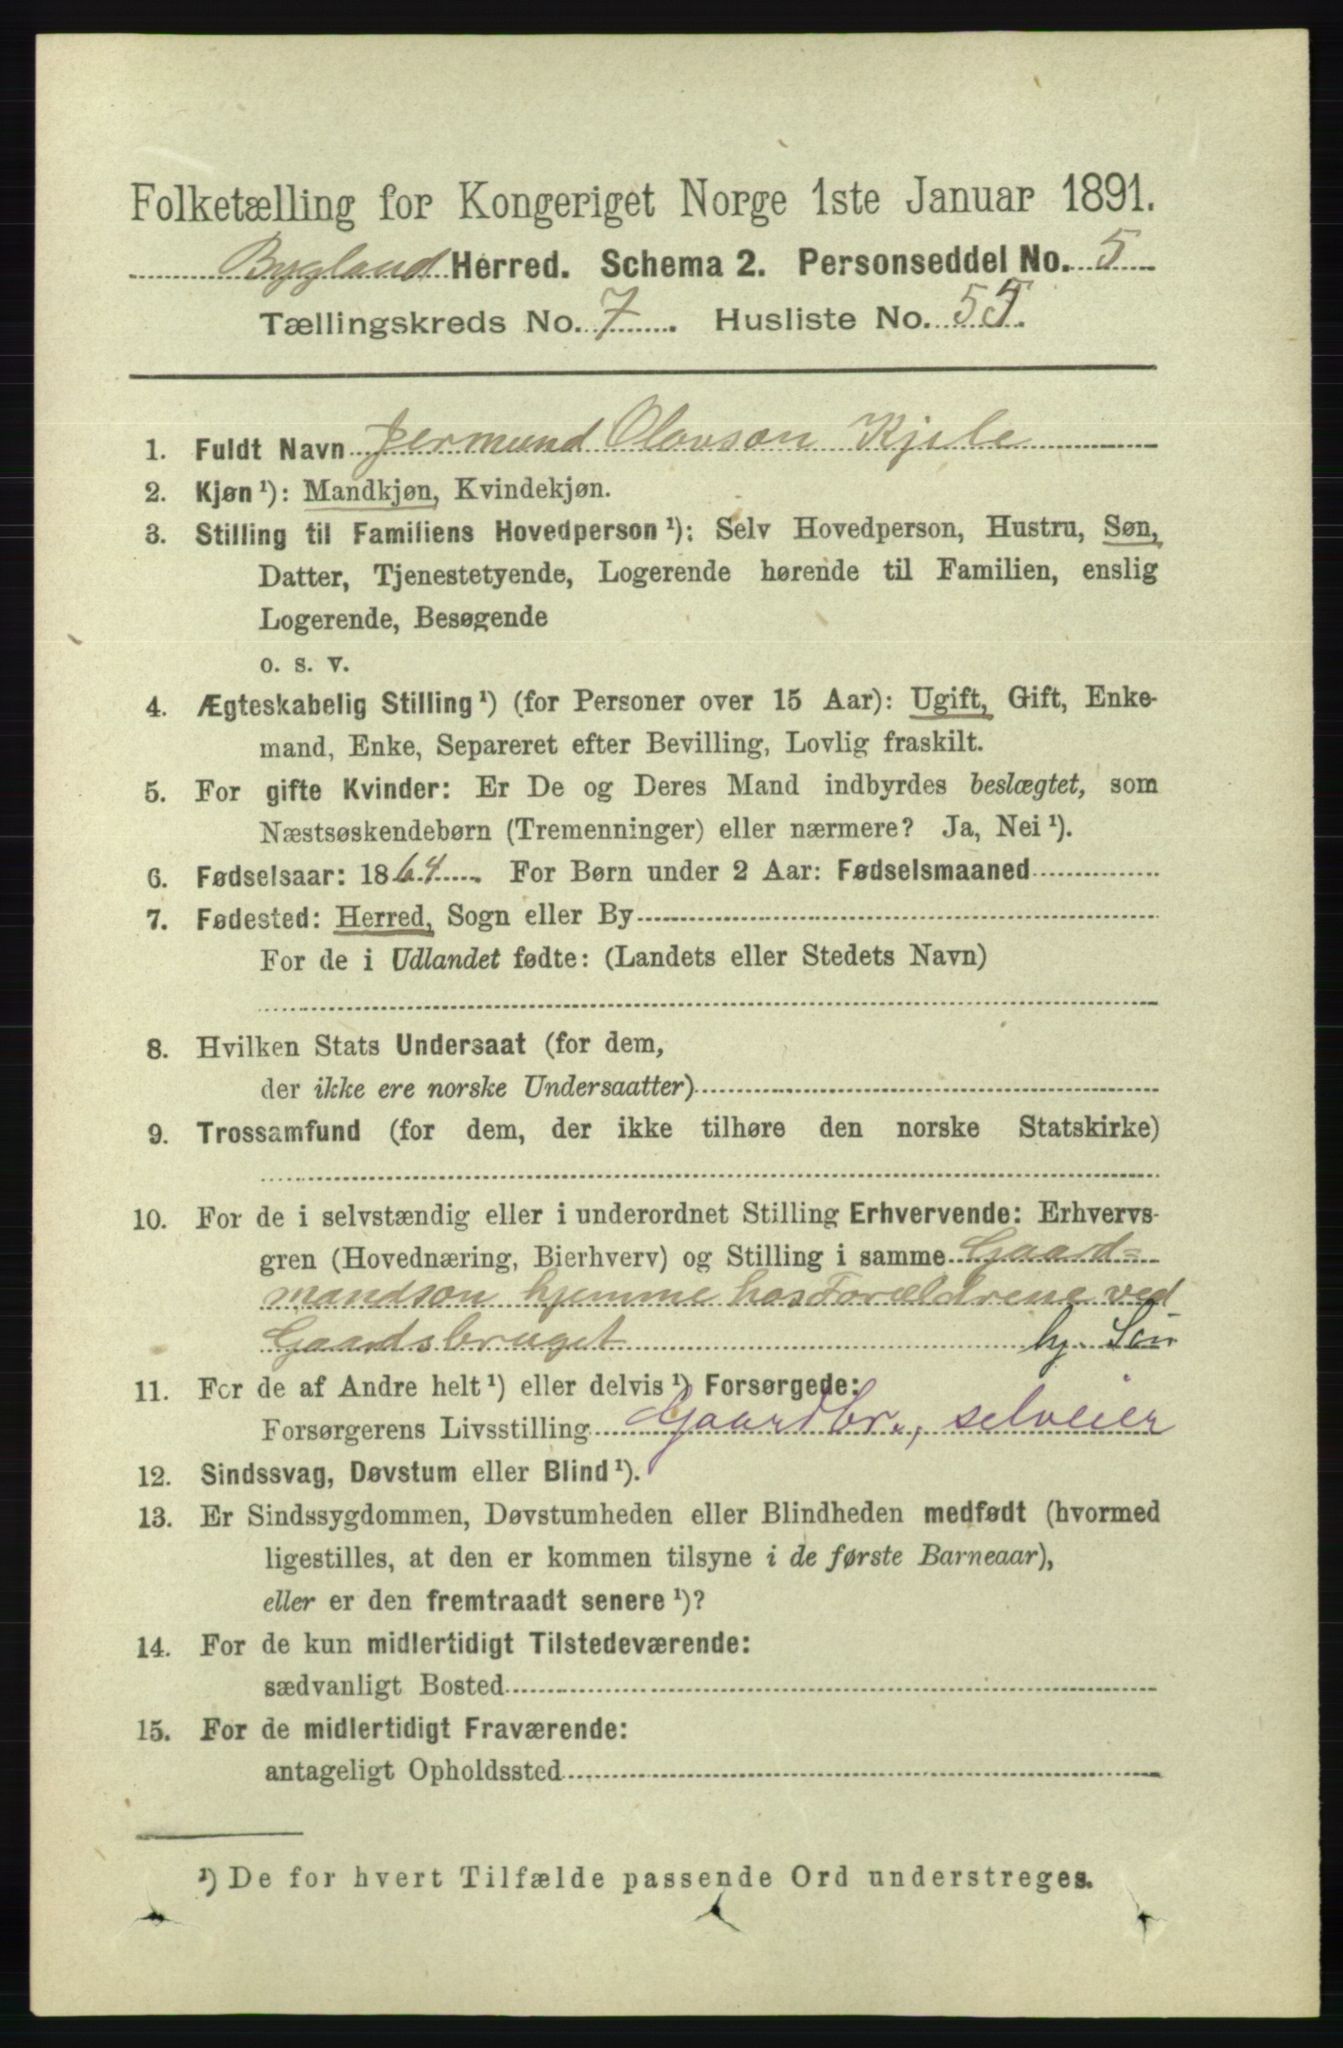 Folketælling for Kongeriget Norge 1ste Januar 1891.
Bygland Herred. Schema 2. Personseddel No. 5
Tællingskreds No. 7. Husliste No. 55.
1. Fuldt Navn Jermund Olavson Kjele
2. Kjøn ¹): Mandkjøn, Kvindekjøn.
3. Stilling til Familiens Hovedperson ¹): Selv Hovedperson, Hustru, Søn,
Datter, Tjenestetyende, Logerende hørende til Familien, enslig
Logerende, Besøgende
o. s. v.
4. Ægteskabelig Stilling ¹) (for Personer over 15 Aar): Ugift, Gift, Enke-
mand, Enke, Separeret efter Bevilling, Lovlig fraskilt.
5. For gifte Kvinder: Er De og Deres Mand indbyrdes beslægtet, som
Næstsøskendebørn (Tremenninger) eller nærmere? Ja, Nei ¹).
6. Fødselsaar: 1864. For Børn under 2 Aar: Fødselsmaaned
7. Fødested: Herred, Sogn eller By
For de i Udlandet fødte: (Landets eller Stedets Navn)
8. Hvilken Stats Undersaat (for dem,
der ikke ere norske Undersaatter)
9. Trossamfund (for dem, der ikke tilhøre den norske Statskirke)
10. For de i selvstændig eller i underordnet Stilling Erhvervende: Erhvervs-
gren (Hovednæring, Bierhverv) og Stilling i samme Gaard=
mandson hjemme hos Forældrene ved
Gaardsbruget hj. Søn
11. For de af Andre helt ¹) eller delvis ¹) Forsørgede:
Forsørgerens Livsstilling Gaardbr., selveier
12. Sindssvag, Døvstum eller Blind ¹).
13. Er Sindssygdommen, Døvstumheden eller Blindheden medfødt (hvormed
ligestilles, at den er kommen tilsyne i de første Barneaar),
eller er den fremtraadt senere ¹)?
14. For de kun midlertidigt Tilstedeværende:
sædvanligt Bosted
15. For de midlertidigt Fraværende:
antageligt Opholdssted
¹) De for hvert Tilfælde passende Ord understreges.